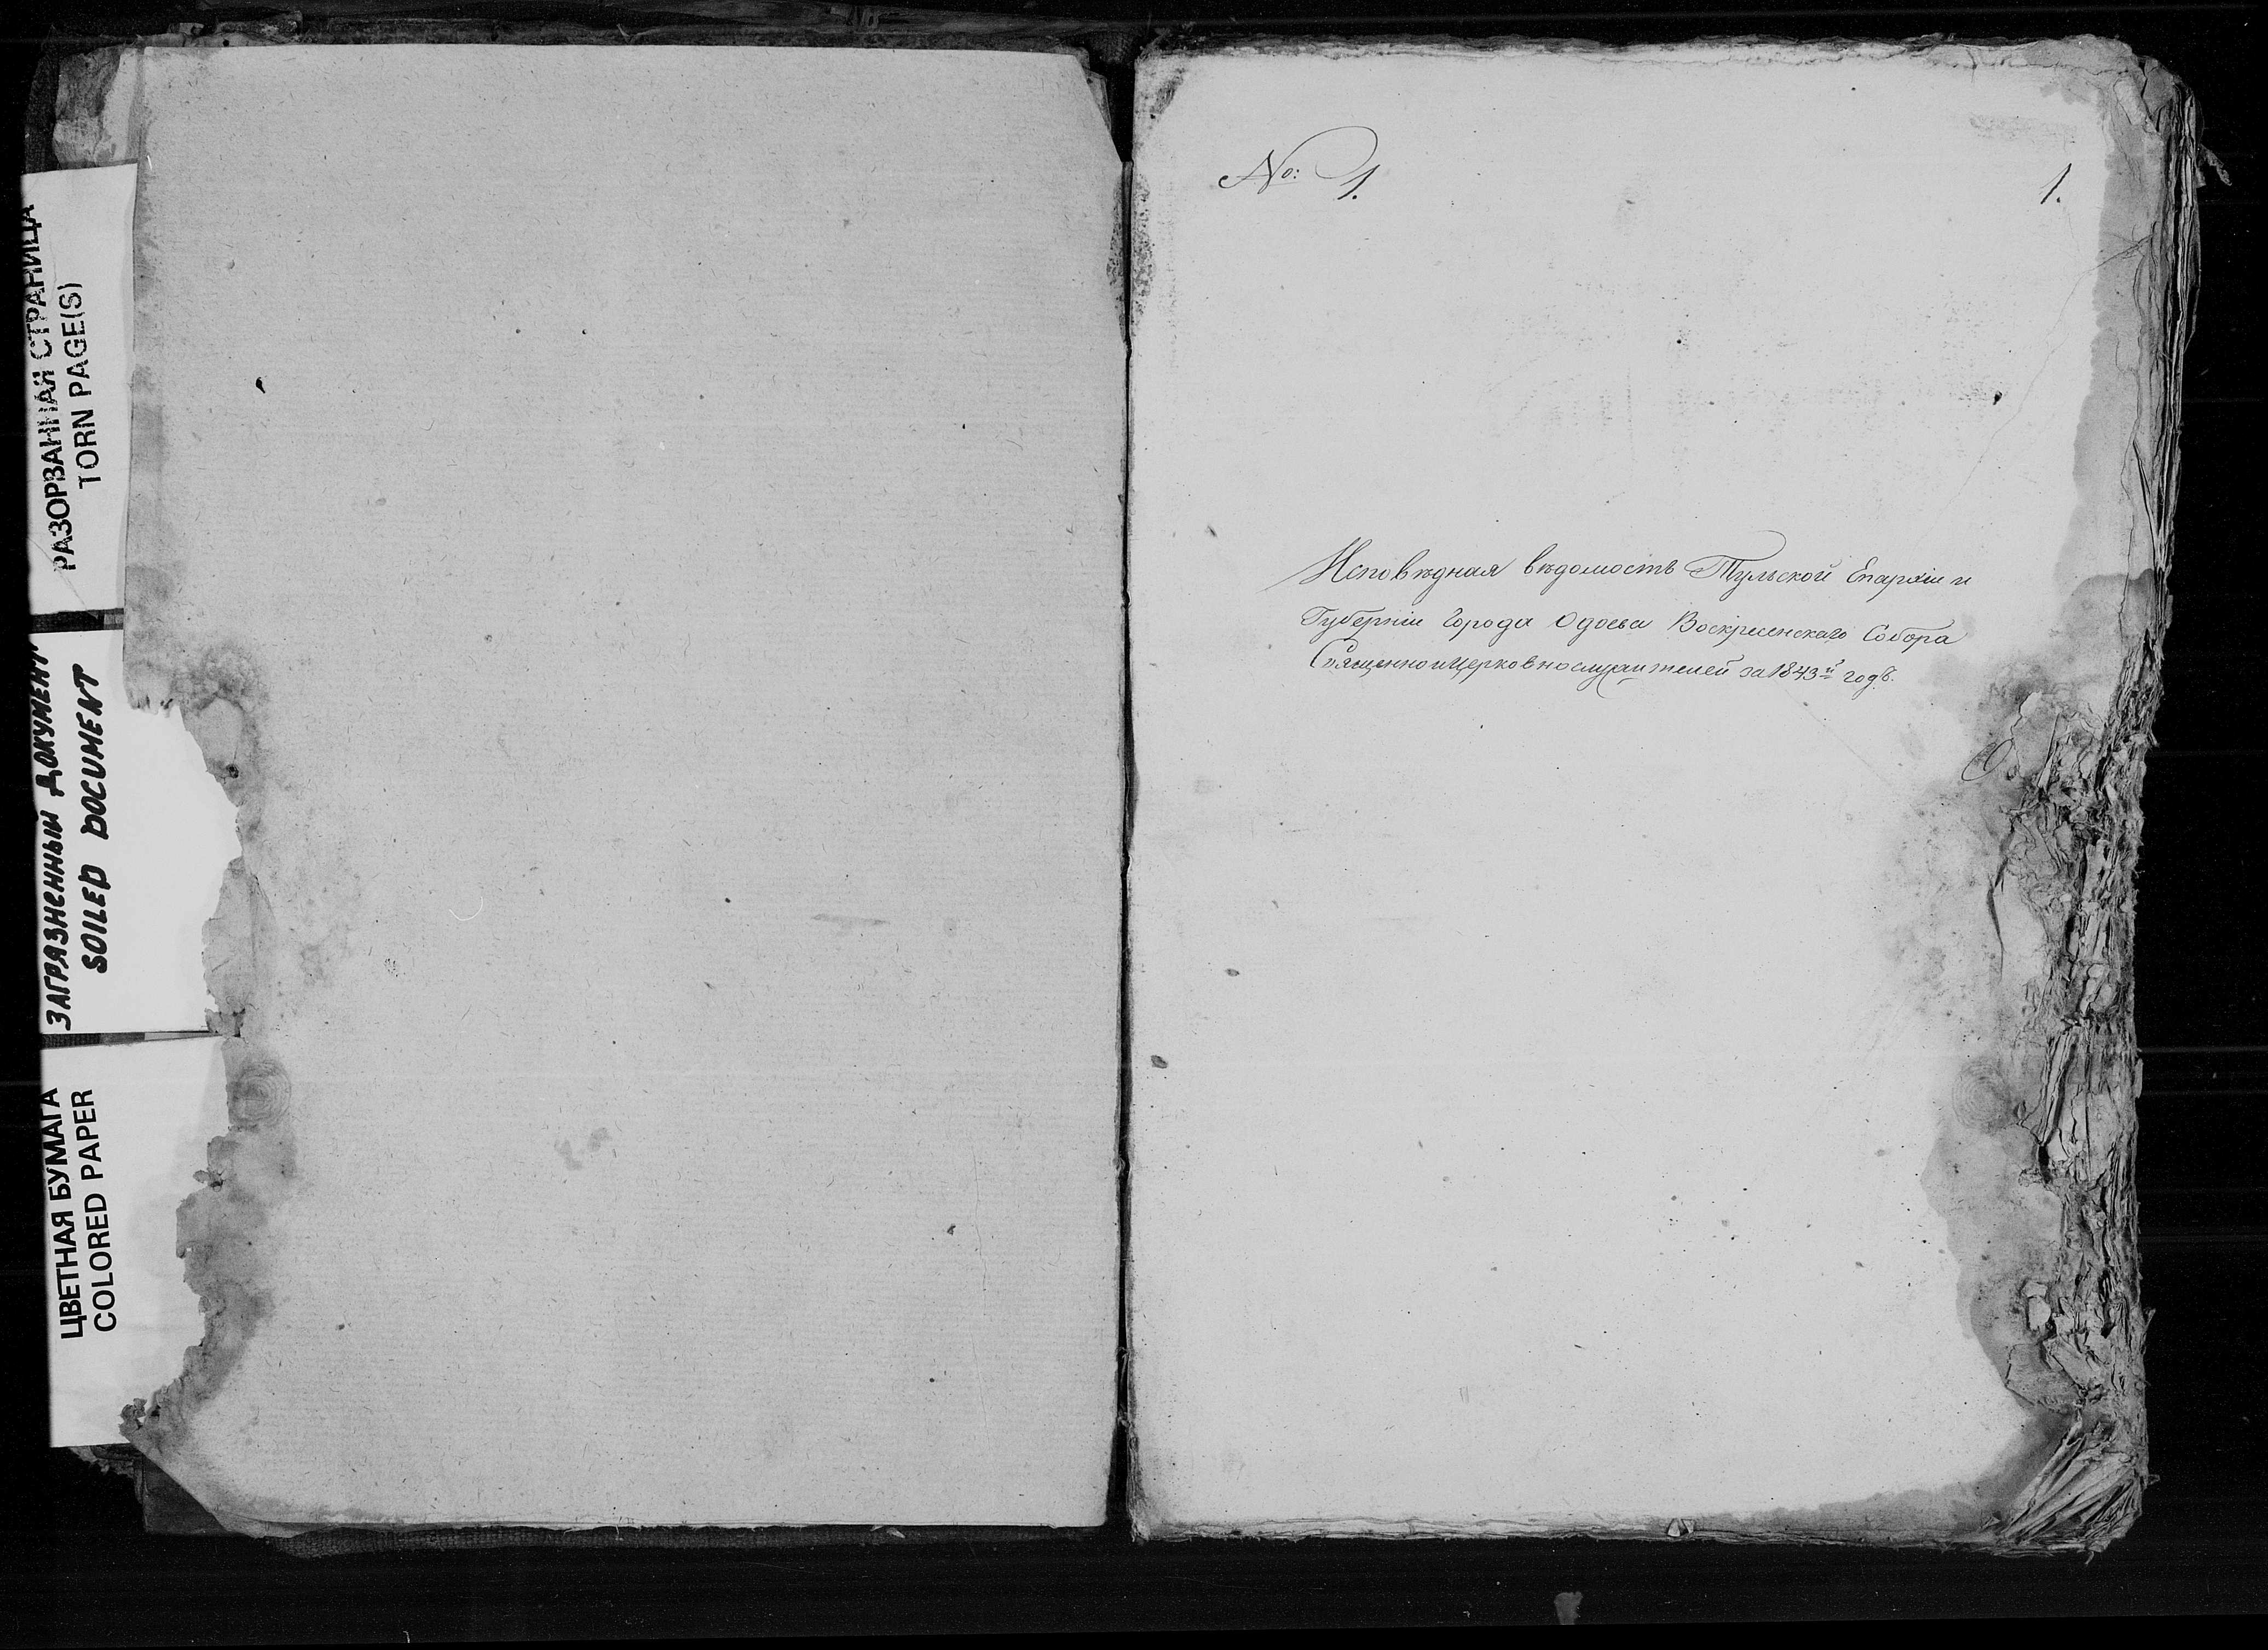 РАЗОРВАННАЯ СТРАНИЦА
TORN PAGE(S)
ЗАГРЯЗНЕННЫЙ ДОКУМЕНТ
SOILED DOCUMENT
ЦВЕТНАЯ БУМАГА
COLORED PAPER
No: 1.
1.
Исповѣдная вѣдомость Тульской Епархіи и
Губерніи Города Одоева Воскресенскаго Собора
Священноицерковнослужителей за 1843й годъ.